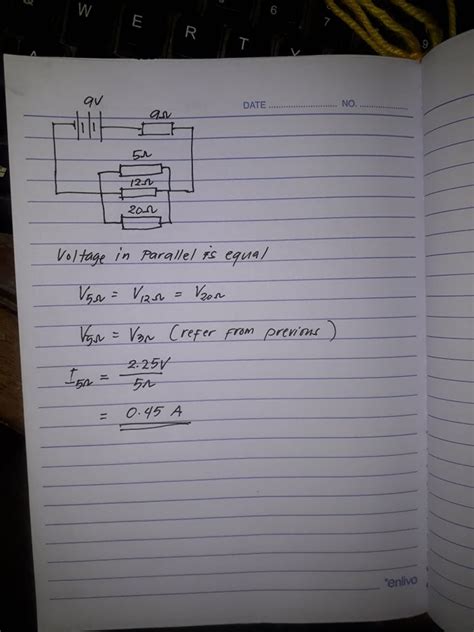 Q W E R T Y
6
9V
9Ω
DATE .................... NO. ............
5Ω
12Ω
20Ω
Voltage in parallel is equal
V5Ω = V12Ω = V20Ω
V5Ω = V3Ω (refer from previous)
I5Ω = 2.25V / 5Ω
= 0.45 A
enlivo